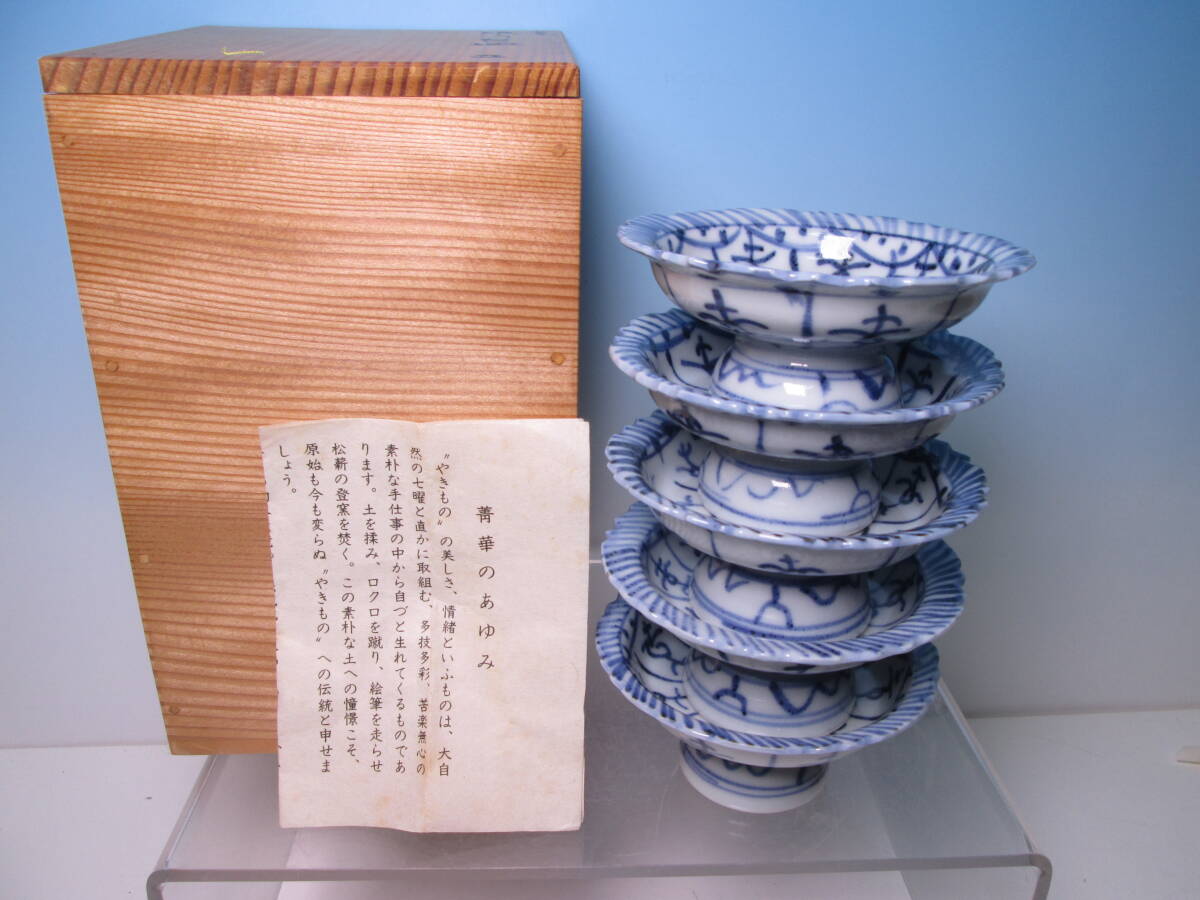 菁華のあゆみ
〝やきもの〟の美しさ、情緒といふものは、大自
然の七曜と直かに取組む、多技多彩、苦楽無心の
素朴な手仕事の中から自づと生れてくるものであ
ります。土を揉み、ロクロを蹴り、絵筆を走らせ
松薪の登窯を焚く。この素朴な土への憧憬こそ、
原始も今も変らぬ〝やきもの〟への伝統と申せま
しょう。